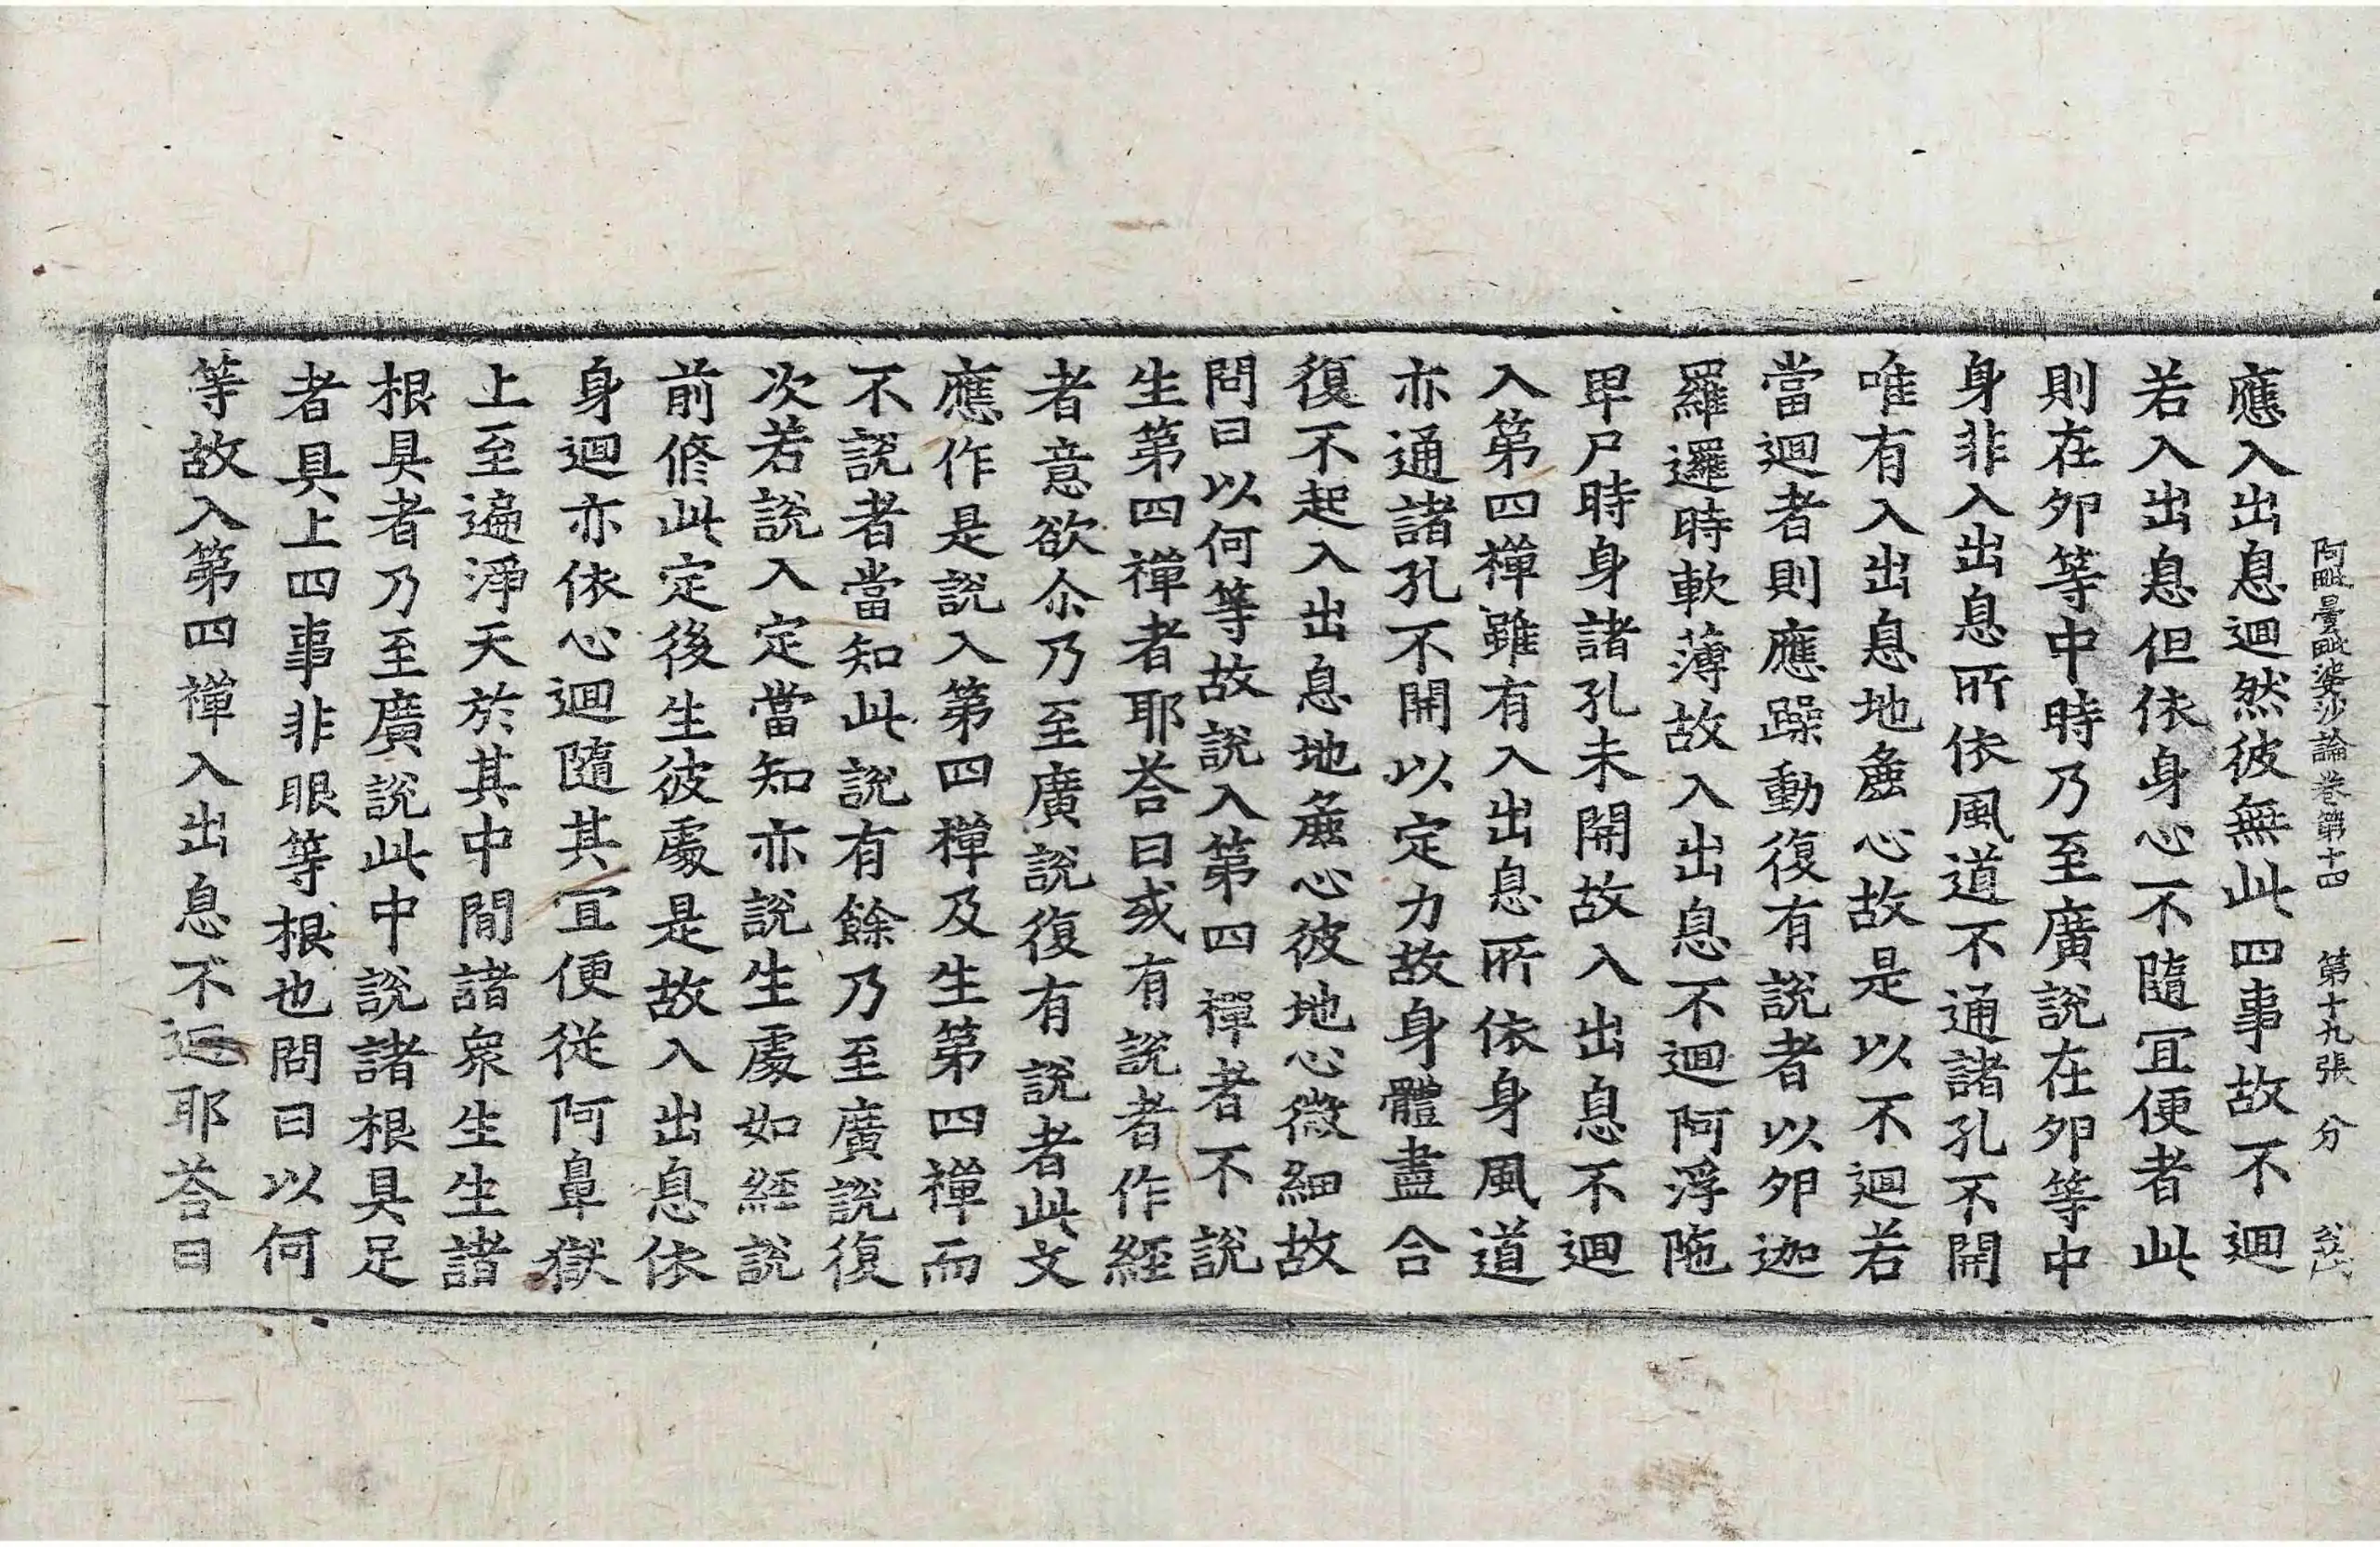 阿毗曇毗婆沙論卷第十四　第十九張　分
應入出息迴然彼無此四事故不迴
若入出息但依身心不隨冝便者此
則在夘等中時乃至廣說在夘等中
身非入出息所依風道不通諸孔不開
唯有入出息地麁心故是以不迴若
當迴者則應躁動復有說者以夘迦
羅邏時軟薄故入出息不迴阿浮陁
卑尸時身諸孔未開故入出息不迴
入第四禪雖有入出息所依身風道
亦通諸孔不開以定力故身體盡合
復不起入出息地麁心彼地心微細故
問曰以何等故說入第四禪者不說
生第四禪者耶荅曰或有說者作經
者意欲尒乃至廣說復有說者此文
應作是說入第四禪及生第四禪而
不說者當知此說有餘乃至廣說復
次若說入定當知亦說生處如經說
前修此定後生彼處是故入出息依
身迴亦依心迴隨其冝便從阿鼻獄
上至遍淨天於其中間諸衆生生諸
根具者乃至廣說此中說諸根具足
者具上四事非眼等根也問曰以何
等故入第四禪入出息不迴耶荅曰